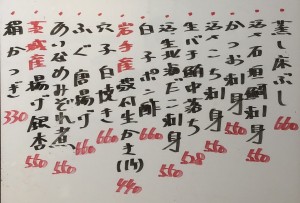 蒸し床ぶし 660
活〆石垣鯛刺身 660
かつお刺身 550
活つぶ刺身 550
生バチ鮪中落ち 528
活〆生地だこ刺身 550
白子ポン酢 660
岩手産 殻付生かき(1ケ) 440
穴子白焼き 660
ふぐ唐揚げ 660
あいなめみぞれ煮 550
茨城産 揚げ銀杏 550
絹かつぎ 330